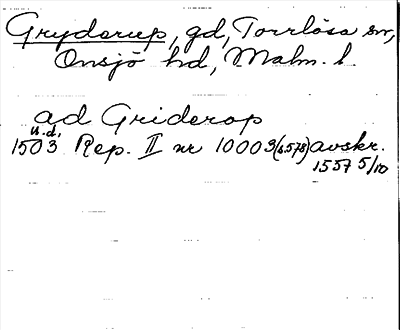 Gryderup, gd, Torrlösa sn,
Onsjö hd, Malm. l.
ad Griderop
u.d.
1503 Rep. II nr 10003 (s.578) avskr.
1557 5/10